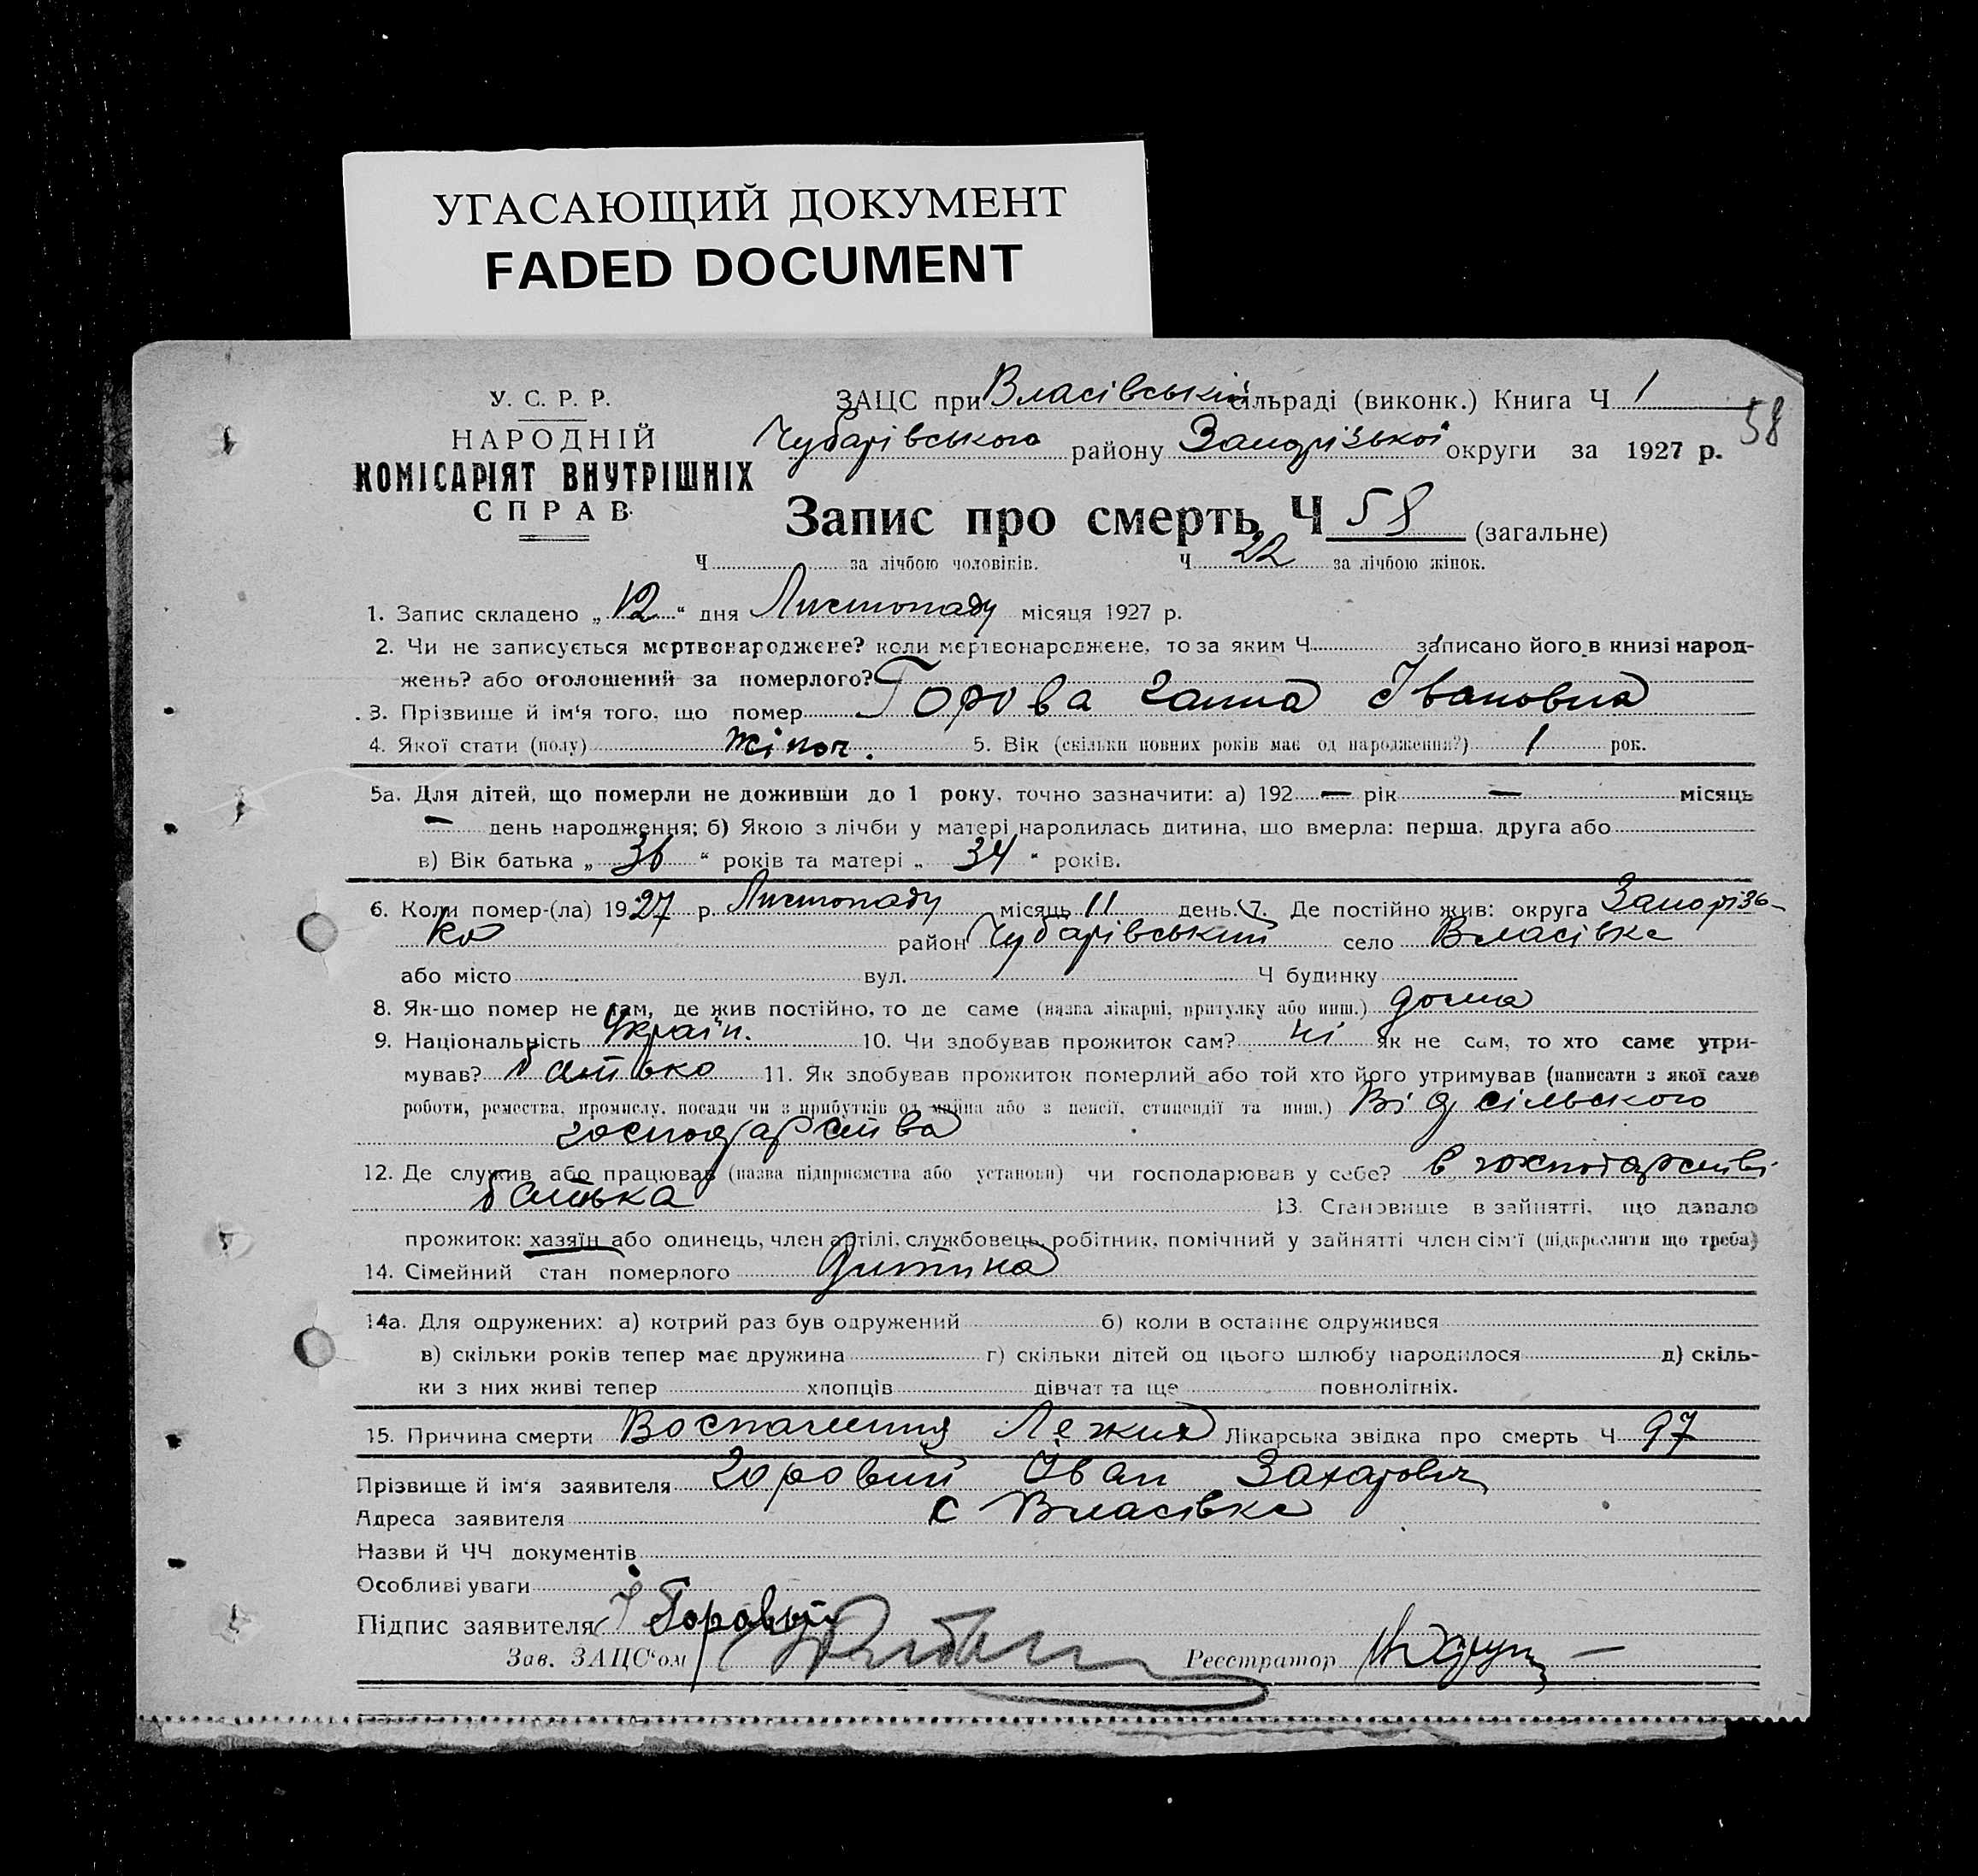 УГАСАЮЩИЙ ДОКУМЕНТ
FADED DOCUMENT
У. С. Р. Р.
НАРОДНІЙ
КОМІСАРІЯТ ВНУТРІШНІХ
СПРАВ
ЗАЦС при Власівській сільраді (виконк.) Книга Ч 1
58
Чубарівського району Запорізької округи за 1927 р.
Запис про смерть Ч 58 (загальне)
Ч за лічбою чоловіків. Ч 22 за лічбою жінок.
1. Запис складено „12" дня Листопаду місяця 1927 р.
2. Чи не записується мертвонароджене? коли мертвонароджене, то за яким Ч записано його в книзі народ-
жень? або оголошений за померлого?
3. Прізвище й ім'я того, що помер Горова Ганна Івановна
4. Якої стати (полу) жіноч. 5. Вік (скільки повних років має од народження?) 1 рок.
5а. Для дітей, що померли не доживши до 1 року, точно зазначити: а) 192 — рік — місяць
— день народження; б) Якою з лічби у матері народилась дитина, що вмерла: перша, друга або
в) Вік батька „36" років та матері „34" років.
6. Коли помер-(ла) 1927 р. Листопаду місяць 11 день. 7. Де постійно жив: округа Запорізь-
ка район Чубарівський село Власівка
або місто вул. Ч будинку
8. Як-що помер не там, де жив постійно, то де саме (назва лікарні, притулку або инш.) дома
9. Національність Україн. 10. Чи здобував прожиток сам? ні як не сам, то хто саме утри-
мував? батько 11. Як здобував прожиток померлий або той хто його утримував (написати з якої саме
роботи, ремества, промислу, посади чи з прибутків од майна або з пенсії, стипендії та инш.) Від сільського
господарства
12. Де служив або працював (назва підприємства або установи) чи господарював у себе? в господарстві
батька 13. Становище в зайнятті, що давало
прожиток: хазяїн або одинець, член артілі, службовець, робітник, помічний у зайнятті член сім'ї (підкреслити що треба)
14. Сімейний стан померлого Дитина
14а. Для одружених: а) котрий раз був одружений б) коли в останнє одружився
в) скільки років тепер має дружина г) скільки дітей од цього шлюбу народилося д) скіль-
ки з них живі тепер хлопців дівчат та ще повнолітніх.
15. Причина смерти Воспаления Лежия Лікарська звідка про смерть Ч 97
Прізвище й ім'я заявителя Горовий Іван Захарович
Адреса заявителя с Власівка
Назви й ЧЧ документів
Особливі уваги
Підпис заявителя І Горовый
Зав. ЗАЦС'ом
Реєстратор